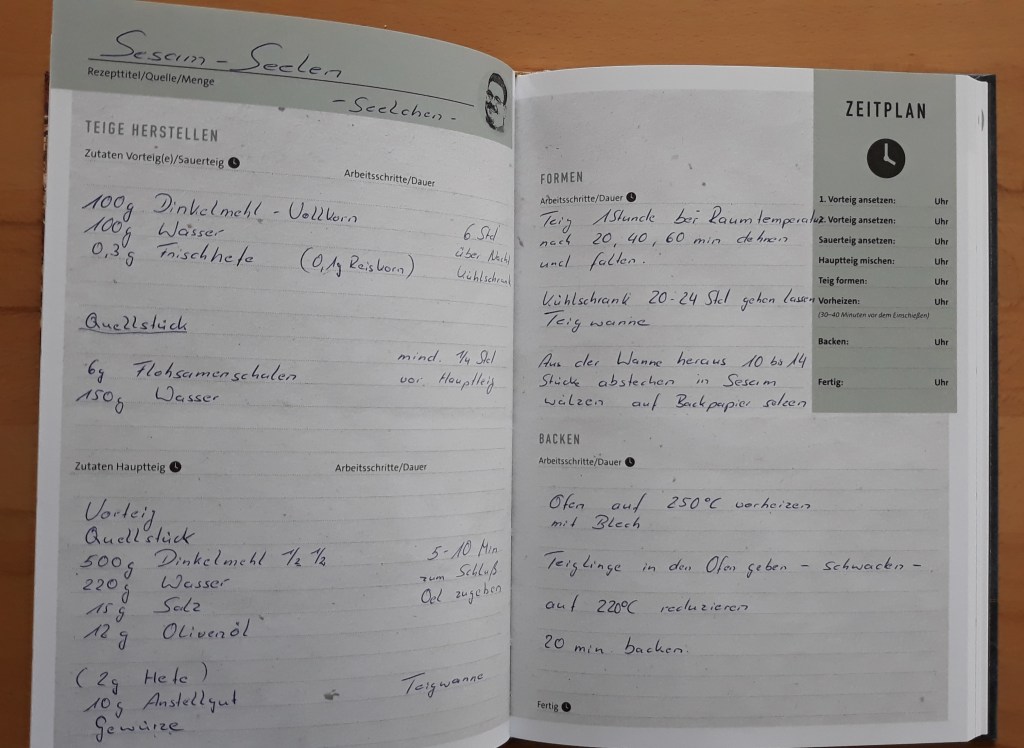 Sesam - Seelen
Rezepttitel/Quelle/Menge
- Seelchen -
TEIGE HERSTELLEN
Zutaten Vorteig(e)/Sauerteig
Arbeitsschritte/Dauer
100g Dinkelmehl - Vollkorn
100g Wasser 6 Std
0,3g Frischhefe (0,1g Reiskorn) über Nacht
Kühlschrank
Quellstück
mind. 1/4 Std
6g Flohsamenschalen vor Hauptteig
150g Wasser
Zutaten Hauptteig Arbeitsschritte/Dauer
Vorteig
Quellstück
500g Dinkelmehl 1/2 1/2 5-10 Min
220g Wasser zum Schluß
15g Salz Oel zugeben
12g Olivenöl
(2g Hefe)
10g Anstellgut Teigwanne
Gewürze
FORMEN
Arbeitsschritte/Dauer
Teig 1 Stunde bei Raumtemperatur
nach 20, 40, 60 min dehnen
und falten.
Kühlschrank 20-24 Std gehen lassen
Teigwanne
Aus der Wanne heraus 10 bis 14
Stücke abstechen in Sesam
wälzen auf Backpapier setzen
BACKEN
Arbeitsschritte/Dauer
Ofen auf 250°C vorheizen
mit Blech
Teiglinge in den Ofen geben - schwaden -
auf 220°C reduzieren
20 min backen.
Fertig
ZEITPLAN
1. Vorteig ansetzen: Uhr
2. Vorteig ansetzen: Uhr
Sauerteig ansetzen: Uhr
Hauptteig mischen: Uhr
Teig formen: Uhr
Vorheizen: Uhr
(30–40 Minuten vor dem Einschießen)
Backen: Uhr
Fertig: Uhr